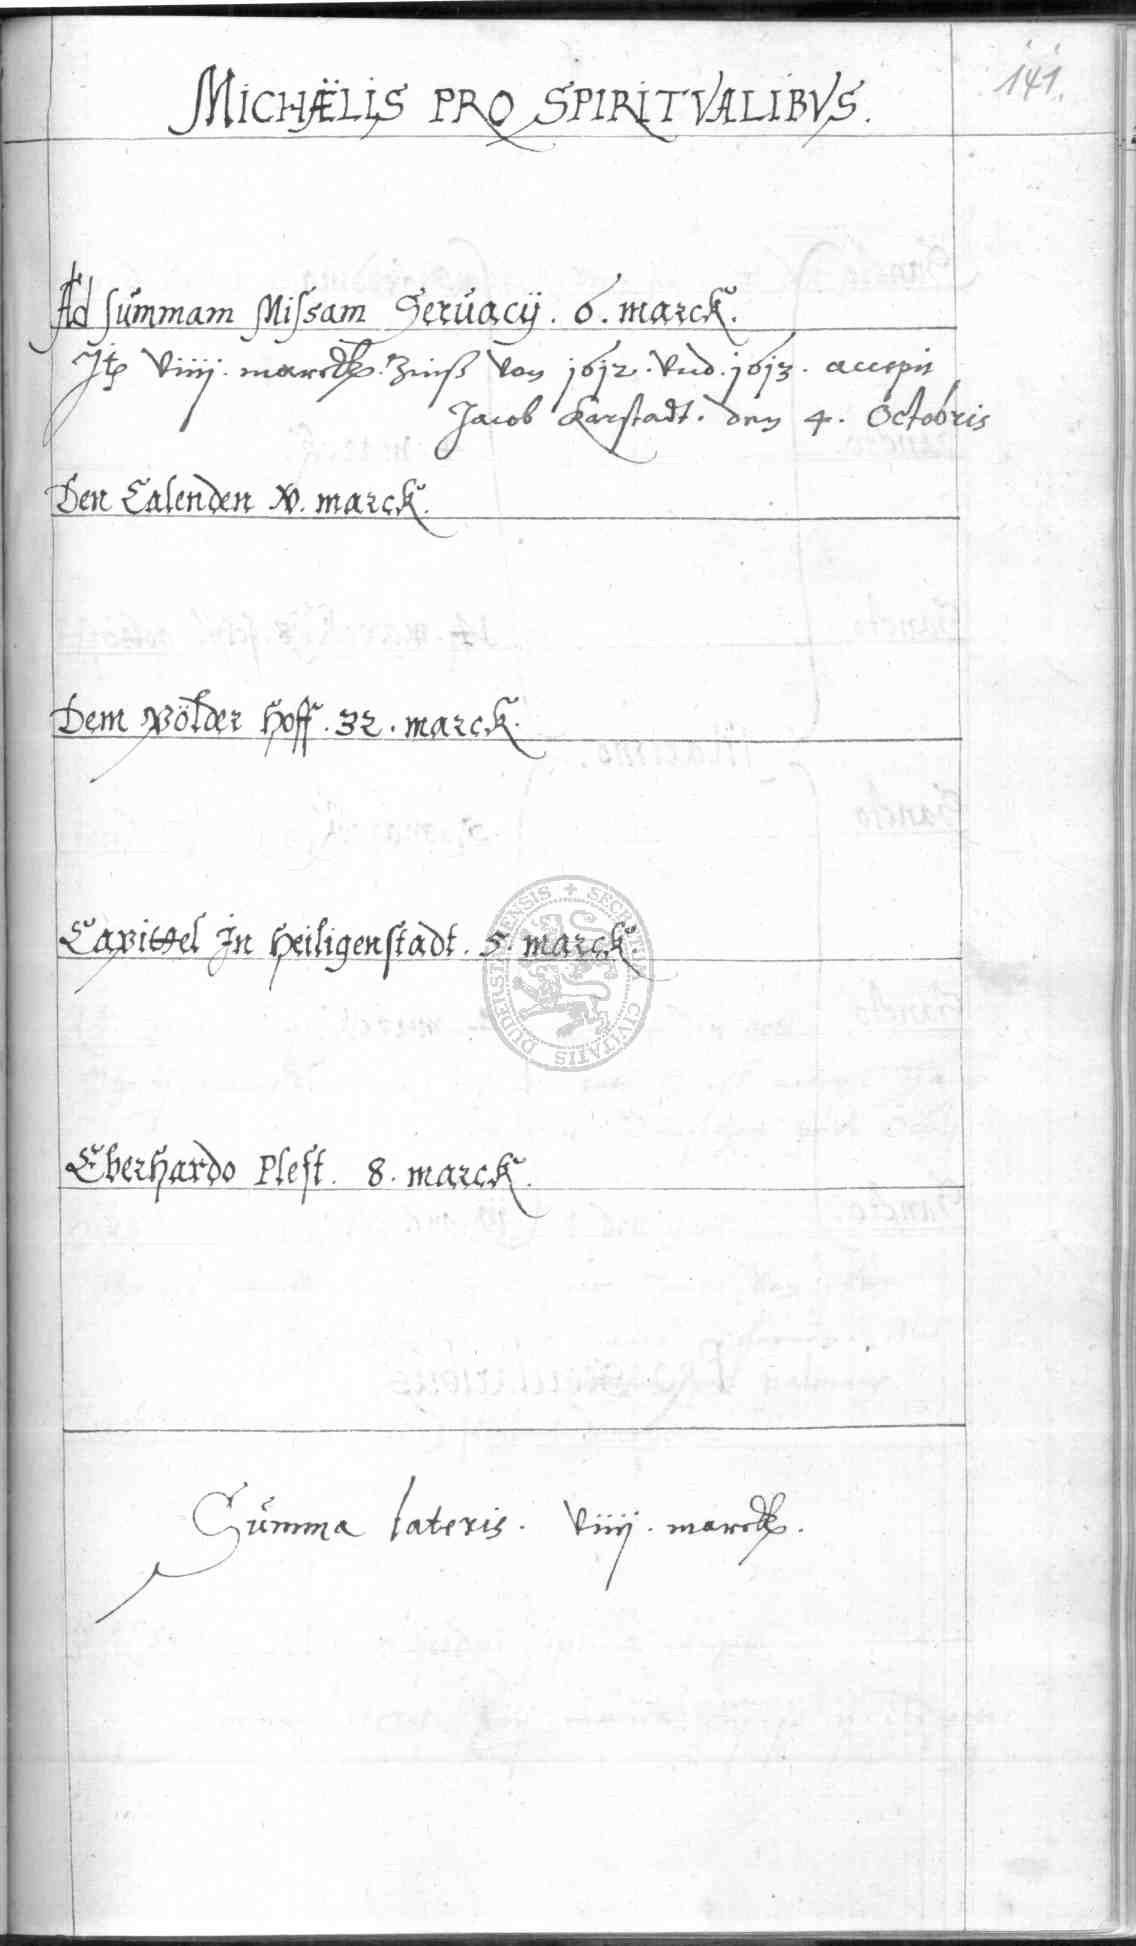 141.
MICHÆLIS PRO SPIRITVALIBVS.
Ad summam Missam Seruacij. 6. marck.
Itp viiij. marck. Zinß von 1612. vnd. 1613. accepit
Jacob Karstadt. den 4. Octobris
Den Calenden x. marck.
Dem Pölder Hoff. 32. marck.
Capittel In Heiligenstadt. 5. marck
Eberhardo Plest. 8. marck.
Summa lateris. viiij. marck.
SECRETUM CIVITATIS DUDERSTADENSIS